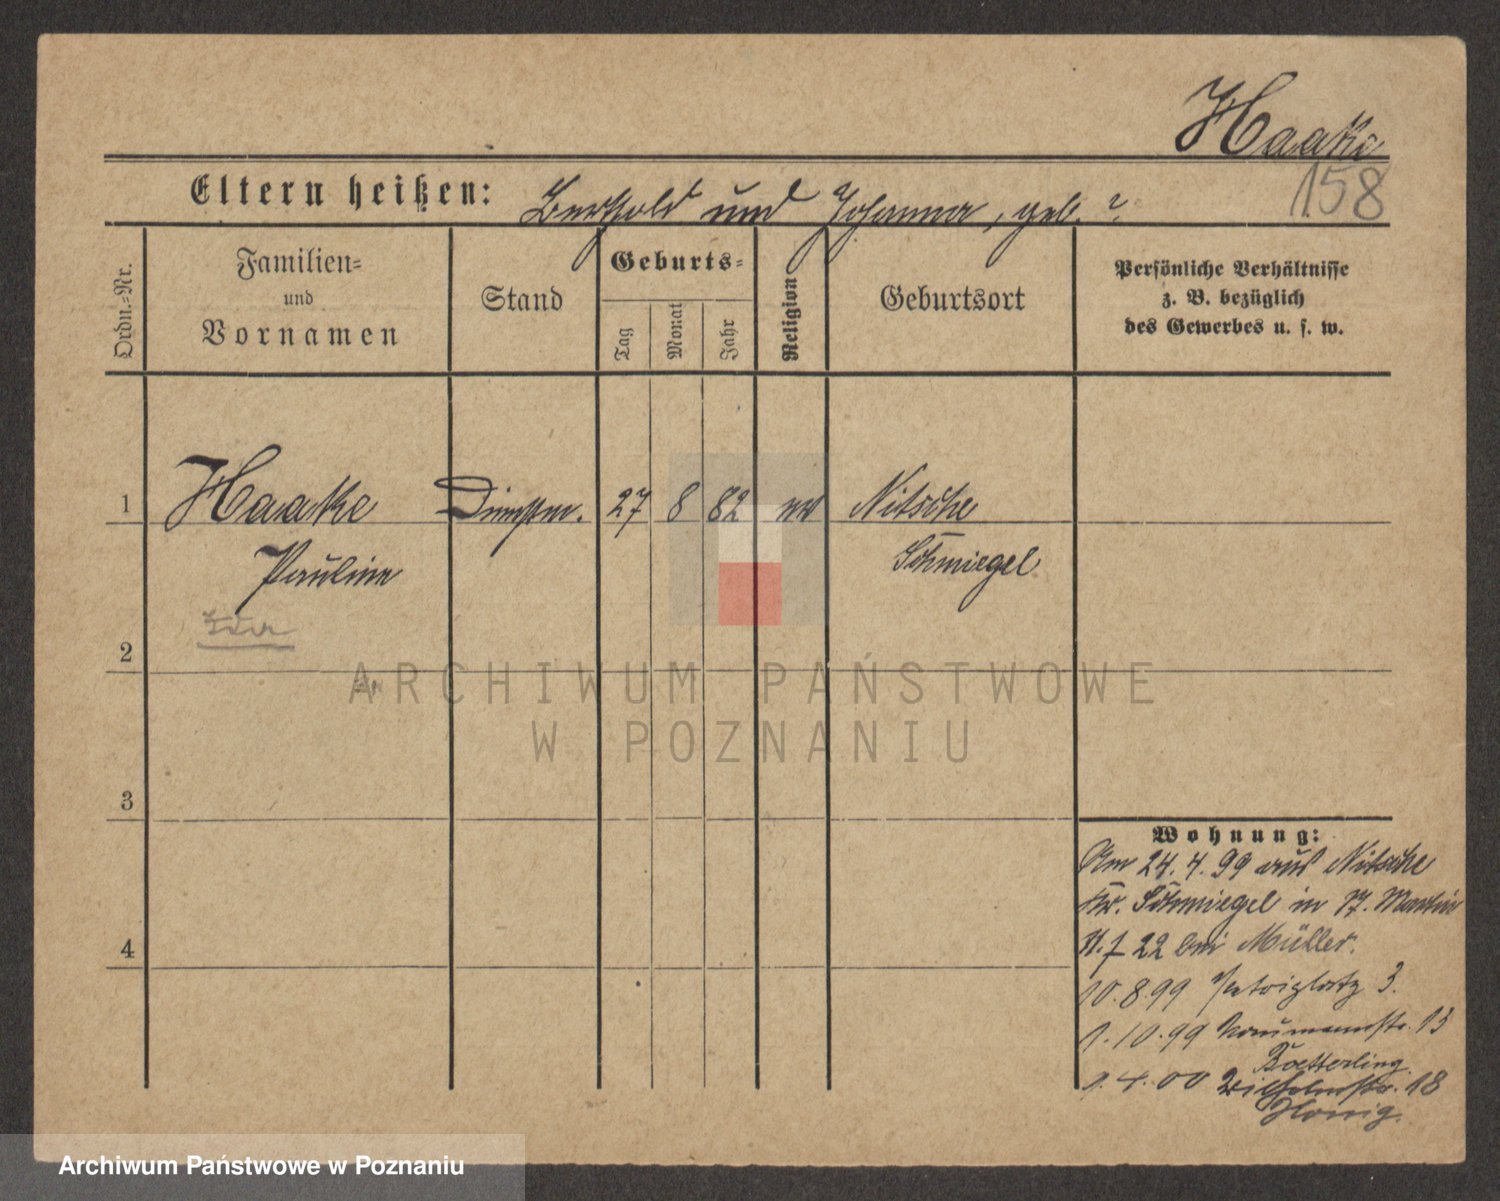 Haake
158
Eltern heißen: Berthold und Johanna, geb. ?
Ordn.=Nr.
Familien=
und
Vornamen
Stand
Geburts=
Tag
Monat
Jahr
Religion
Geburtsort
Persönliche Verhältnisse
z. B. bezüglich
des Gewerbes u. s. w.
1 Haake 27 8 82 Nitsche
Pauline Schmiegel
2
ARCHIWUM PAŃSTWOWE
W POZNANIU
3
4
Wohnung:
Am 24.4.99 aus Nitsche
Kr. Schmiegel in St. Martin
22 bei Müller.
10.8.99 Petriplatz 3.
1.10.99 Naumannstr. 13
Boetterling
1.4.00 Wilhelmstr. 18
Honig.
Archiwum Państwowe w Poznaniu